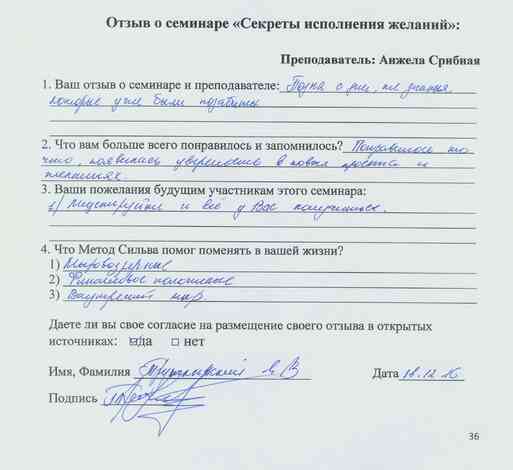 Отзыв о семинаре «Секреты исполнения желаний»:
Преподаватель: Анжела Срибная
1. Ваш отзыв о семинаре и преподавателе:
которые уже были позабыты
2. Что вам больше всего понравилось и запомнилось? Понравилось то
что, появилась уверенность в
3. Ваши пожелания будущим участникам этого семинара:
Медитируйте и всё у Вас получиться.
4. Что Метод Сильва помог поменять в вашей жизни?
1) Мировоззрение
2) Финансовое положение
3) Внутренний мир
Даете ли вы свое согласие на размещение своего отзыва в открытых
источниках: да нет
Имя, Фамилия Дата 18.12.16
Подпись
36